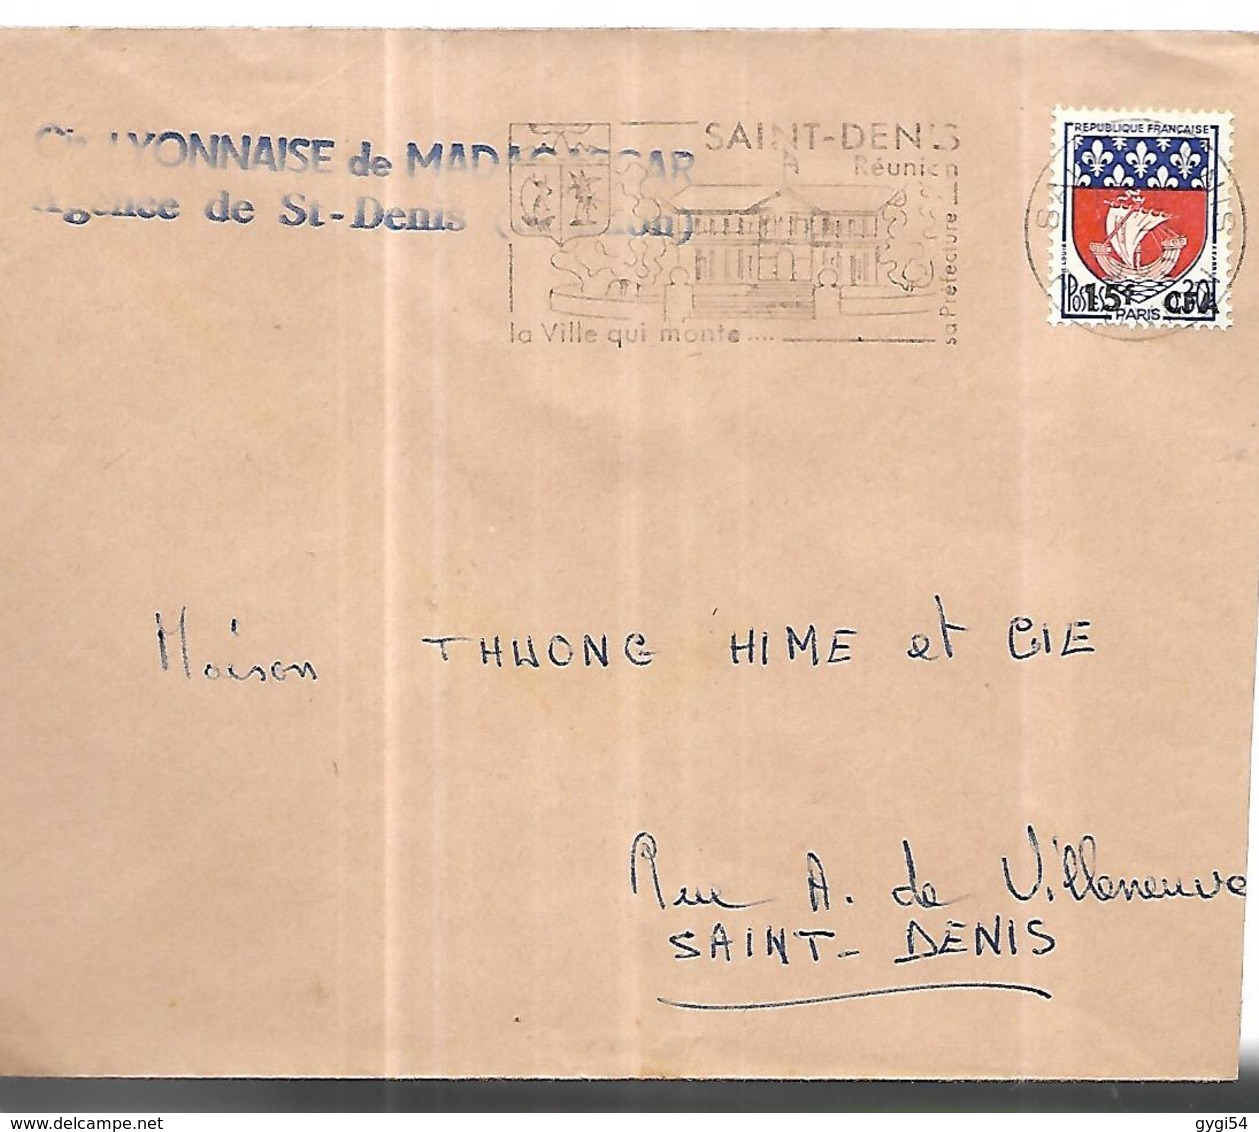 Cie LYONNAISE de MADAGASCAR
Agence de St-Denis (Réunion)
SAINT-DENIS
Réunion
sa Préfecture
la Ville qui monte ....
REPUBLIQUE FRANÇAISE
POSTES
15F CFA
PARIS
Maison THUONG HIME et CIE
Rue A. de Villeneuve
SAINT-DENIS
www.delcampe.net
gygi54